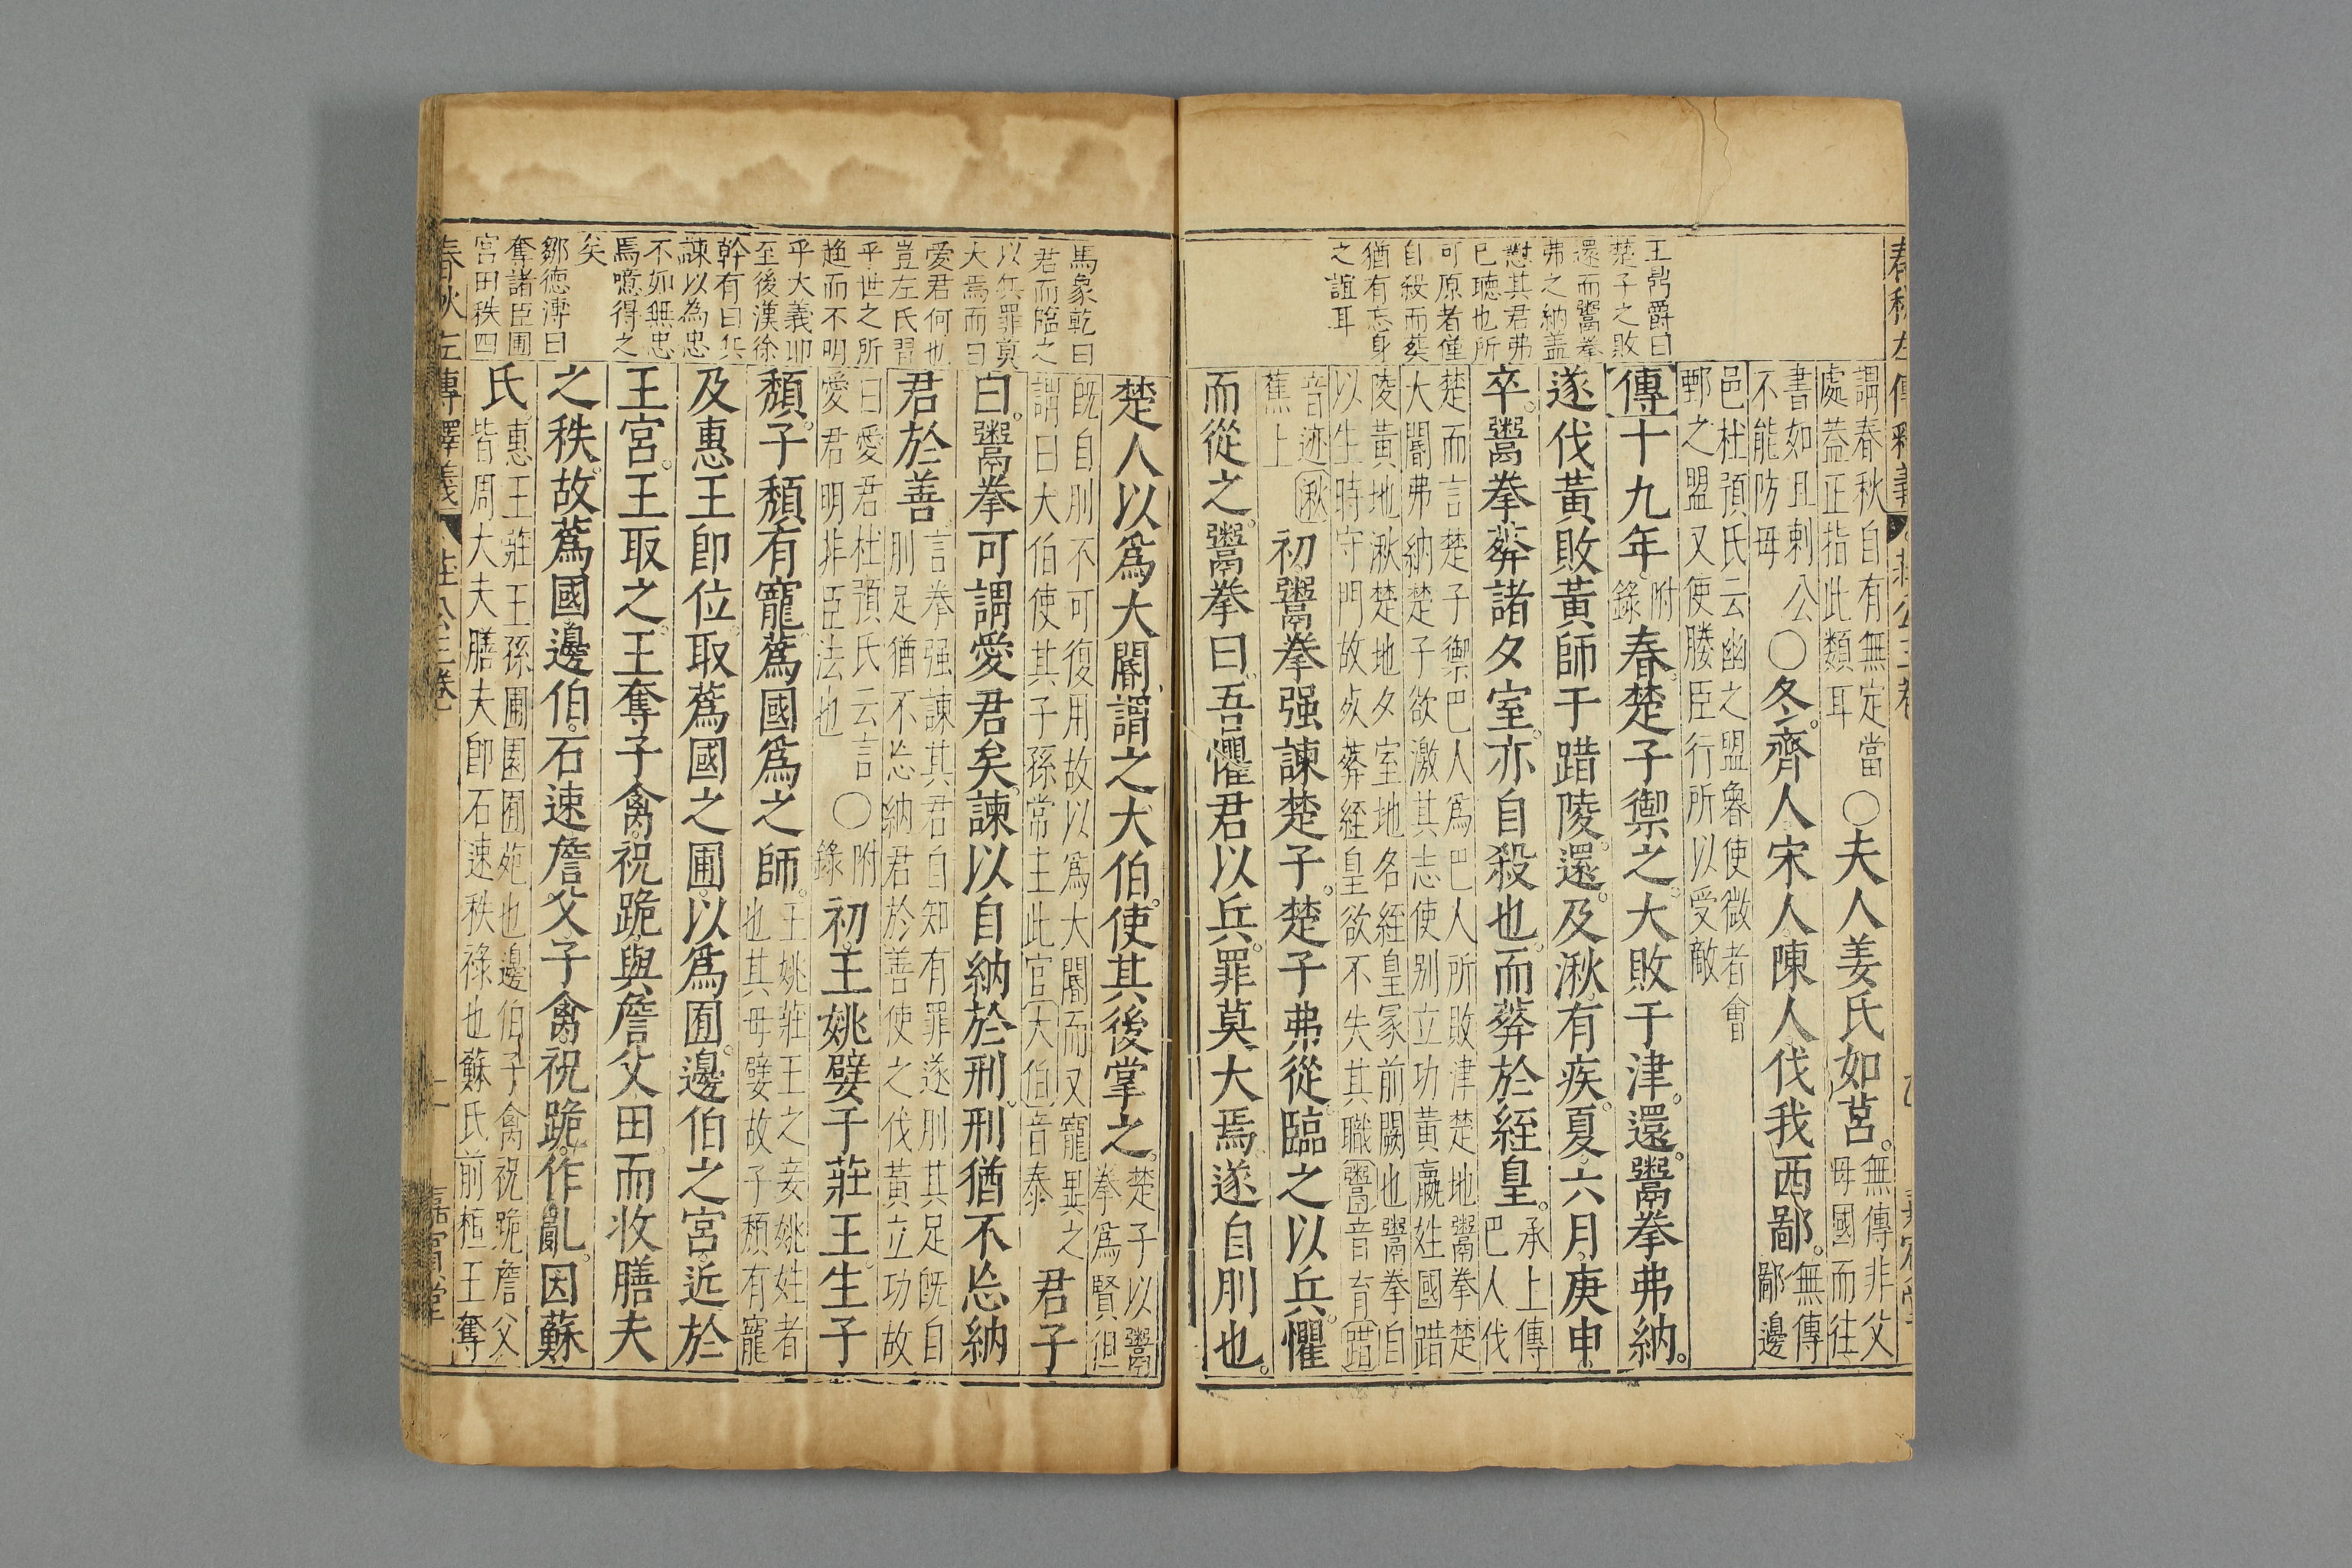 王鼎爵曰
楚子之敗
還而鬻拳
弗之納盖
懟其君弗
已聴也所
可原者僅
自殺而葬
猶有忘身
之誼耳
謂春秋自有無定當
處葢正指此類耳
〇夫人姜氏如莒。無傳非父
母國而往
書如且剌公
不能防母
〇冬。齊人宋人陳人伐我西鄙。無傳
鄙邊
邑杜預氏云幽之盟魯使微者會
鄄之盟又使媵臣行所以受敵
傳十九年。附
錄
春。楚子禦之。大敗于津。還。鬻拳弗納。
遂伐黃敗黃師于踖陵。還。及湫。有疾。夏。六月。庚申
卒。鬻拳葬諸夕室。亦自殺也。而葬於絰皇。承上傳
巴人伐
楚而言楚子禦巴人爲巴人所敗津楚地鬻拳楚
大閽弗納楚子欲激其志使别立功黃嬴姓國踖
陵黃地湫楚地夕室地名絰皇冡前闕也鬻拳自
以生時守門故死葬絰皇欲不失其職鬻音育踖
音迹湫
蕉上
初。鬻拳强諫楚子。楚子弗從。臨之以兵。懼
而從之。鬻拳曰。吾懼君以兵。罪莫大焉。遂自刖也。
馬象乾曰
君而臨之
以兵罪莫
大焉而曰
愛君何也
豈左氏習
乎世之所
趋而不明
乎大義耶
至後漢徐
幹有曰兵
諫以為忠
不如無忠
焉噫得之
矣
鄒德溥曰
奪諸臣圃
宮田秩四
楚人以爲大閽。謂之大伯。使其後掌之。楚子以鬻
拳爲賢但
旣自刖不可復用故以爲大閽而又寵異之
謂曰大伯使其子孫常主此官大伯音泰
君子
曰。鬻拳可謂愛君矣。諫以自納於刑。刑猶不忘納
君於善。言拳强諫其君自知有罪遂刖其足旣自
刖足猶不忘納君於善使之伐黃立功故
曰愛君杜預氏云言
愛君明非臣法也
〇附
錄
初。王姚嬖于莊王。生子
頹。子頹有寵。蔿國爲之師。王姚莊王之妾姚姓者
也其母嬖故子頹有寵
及惠王卽位。取蔿國之圃。以爲囿。邊伯之宮。近於
王宮。王取之。王奪子禽。祝跪。與詹父田。而收膳夫
之秩。故蔿國。邊伯。石速。詹父。子禽。祝跪。作亂。因蘇
氏。惠王莊王孫圃園囿苑也邊伯子禽祝跪詹父
皆周大夫膳夫卽石速秩祿也蘇氏前桓王奪
春秋左傳釋義
莊公三卷
嘉賓堂